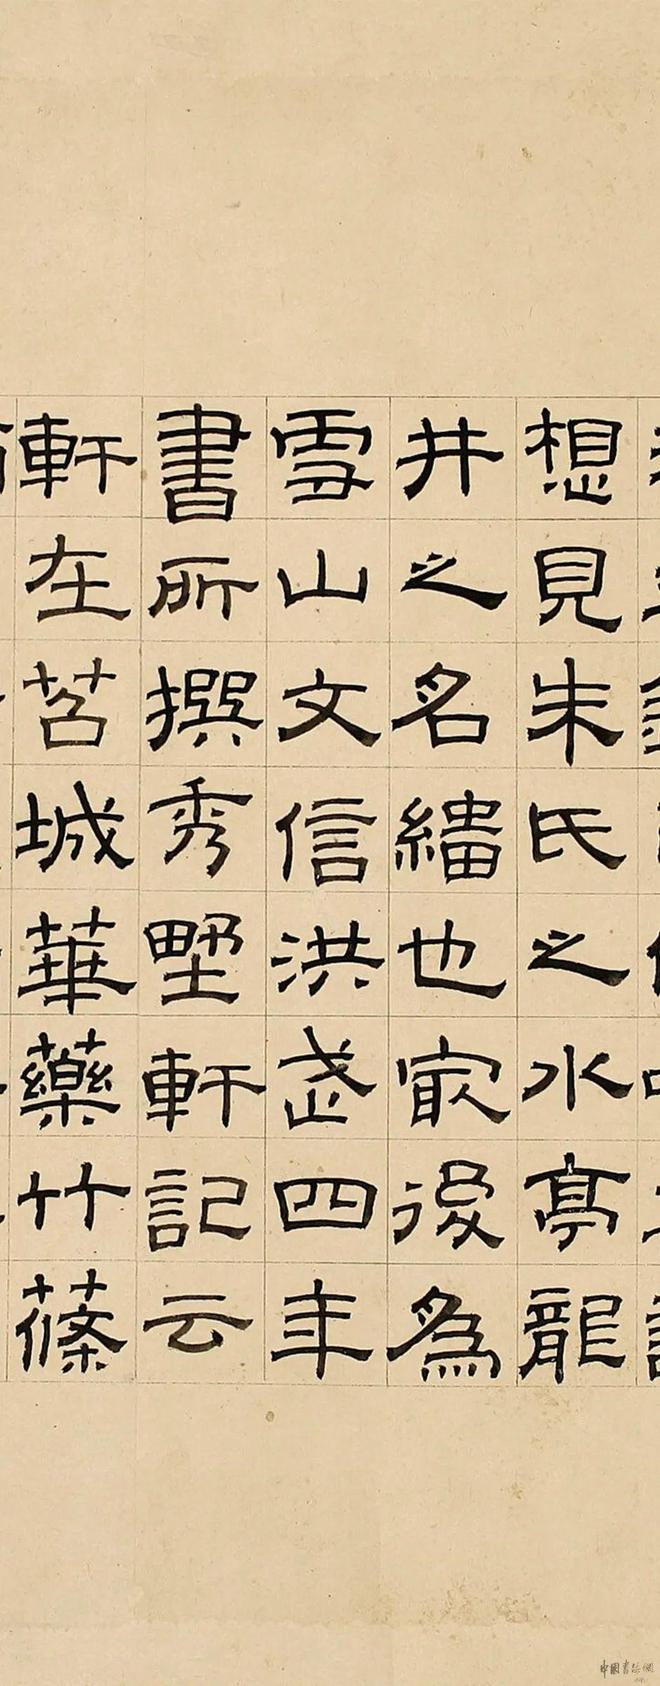 想見朱氏之水亭龍
井之名繣也㝡後為
雪山文信洪武四年
書所撰秀野軒記云
軒在苕城華藥竹篠
中国書法網